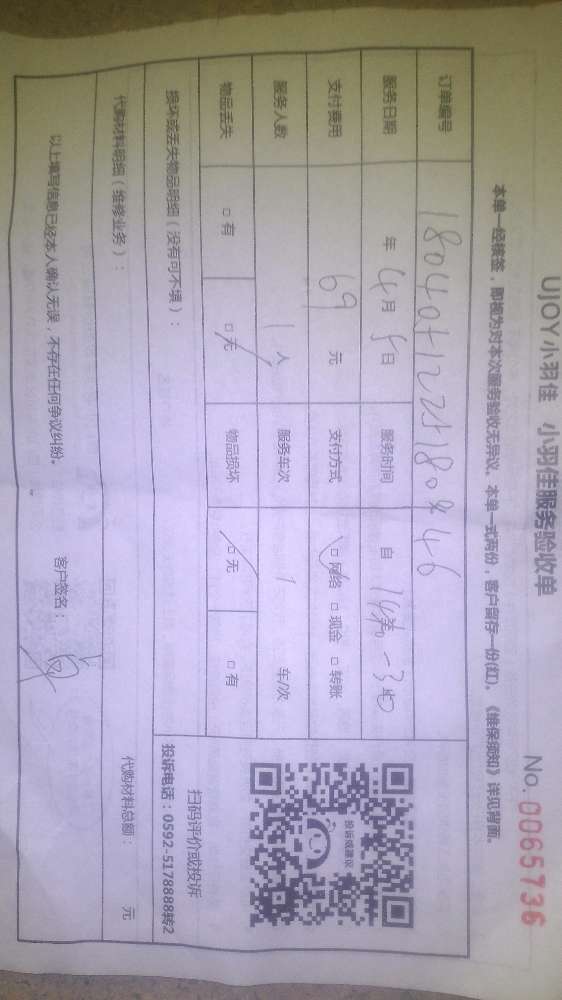 UJOY小羽佳 小羽佳服务验收单
No. 0065736
本单一经核签，即视为对本次服务验收无异议。本单一式两份，客户留存一份(红)。《维保须知》详见背面。
订单编号
服务日期 年 4月 5日 服务时间 自
支付费用 69 元 支付方式 □ 网络 □ 现金 □ 转账
服务人数 1 人 服务车次 1 车/次
物品丢失 □ 有 □ 无 物品损坏 □ 无 □ 有
投诉或建议
扫码评价或投诉
投诉电话：0592-5178888转2
损坏或丢失物品明细（没有可不填）：
代购材料明细（维修业务）： 代购材料总额： 元
以上填写信息已经本人确认无误，不存在任何争议纠纷。 客户签名：